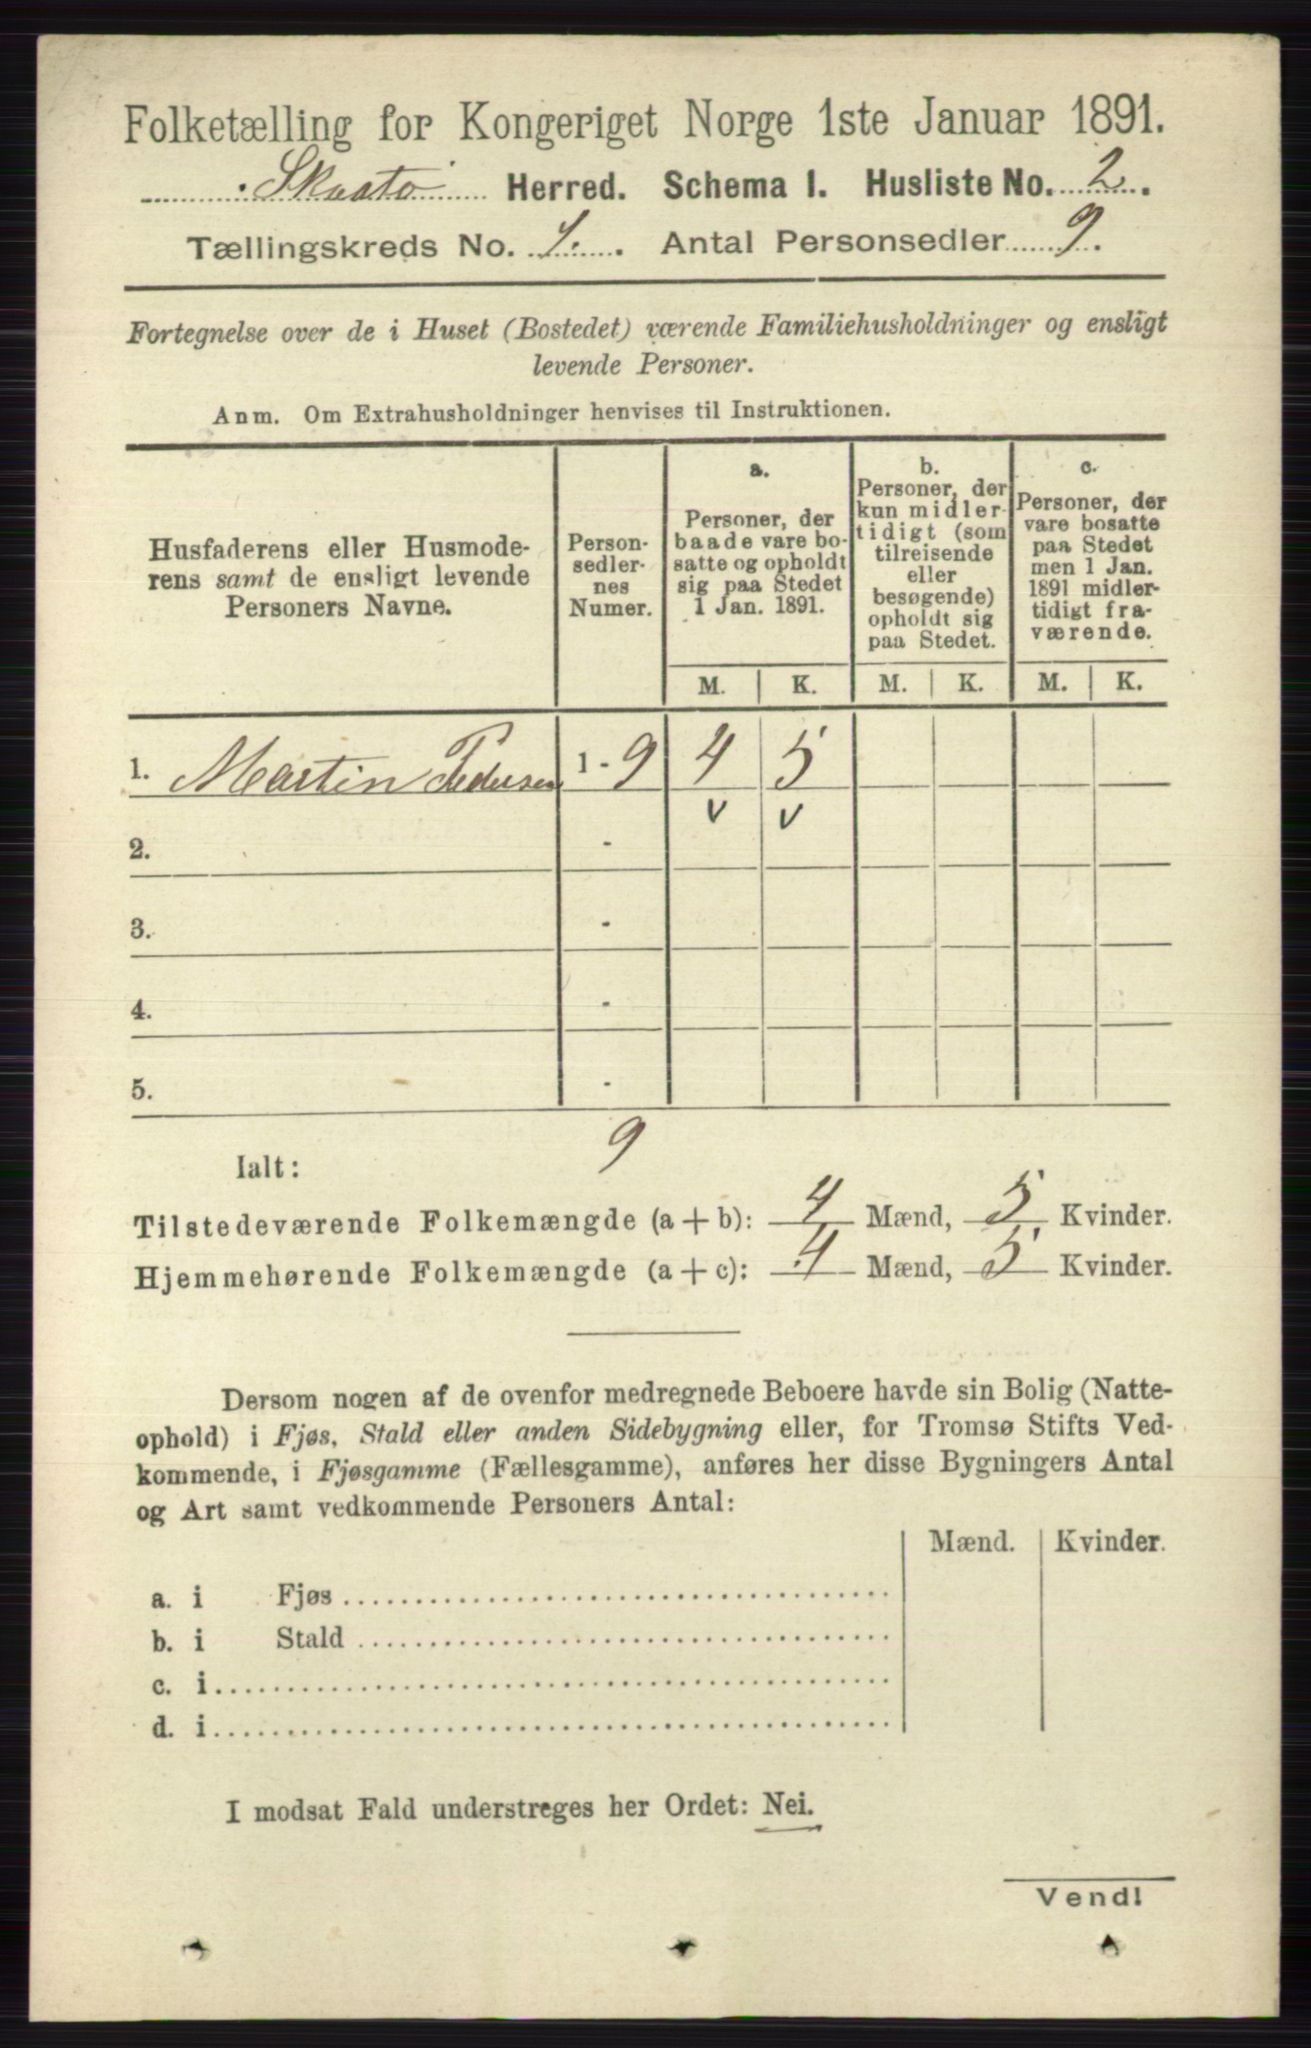 Folketælling for Kongeriget Norge 1ste Januar 1891.
Skaatø Herred. Schema I. Husliste No. 2.
Tællingskreds No. 1. Antal Personsedler 9.
Fortegnelse over de i Huset (Bostedet) værende Familiehusholdninger og ensligt
levende Personer.
Anm. Om Extrahusholdninger henvises til Instruktionen.
Husfaderens eller Husmode-
rens samt de ensligt levende
Personers Navne.
Person-
sedler-
nes
Numer.
a.
Personer, der
baade vare bo-
satte og opholdt
sig paa Stedet
1 Jan. 1891.
b.
Personer, der
kun midler-
tidigt (som
tilreisende
eller
besøgende)
opholdt sig
paa Stedet.
c.
Personer, der
vare bosatte
paa Stedet
men 1 Jan.
1891 midler-
tidigt fra-
værende.
M. K. M. K. M. K.
1. Martin Pedersen 1 - 9 4 5
v v
2. -
3. -
4. -
5. -
9
Ialt:
Tilstedeværende Folkemængde (a + b): 4 Mænd, 5 Kvinder.
Hjemmehørende Folkemængde (a + c): 4 Mænd, 5 Kvinder.
Dersom nogen af de ovenfor medregnede Beboere havde sin Bolig (Natte-
ophold) i Fjøs, Stald eller anden Sidebygning eller, for Tromsø Stifts Ved-
kommende, i Fjøsgamme (Fællesgamme), anføres her disse Bygningers Antal
og Art samt vedkommende Personers Antal:
Mænd. Kvinder.
a. i Fjøs
b. i Stald
c. i
d. i
I modsat Fald understreges her Ordet: Nei.
Vend!